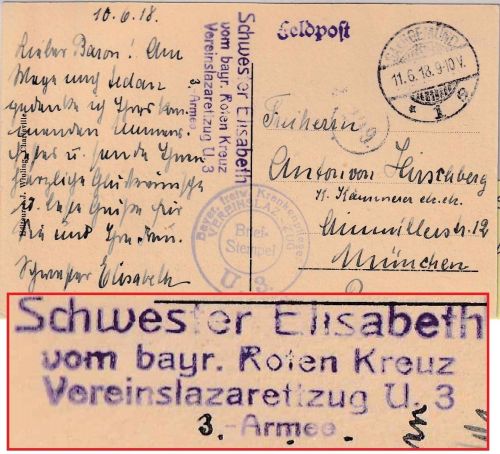 10.6.18.
Lieber Baron! Am
Wege nach Sedan
gedenke ich Ihres kom-
menden Namens-
festes u. sende Ihnen
herzliche Glückwünsche
u. beste Grüße für
Sie und Ihre Frau.
Schwester Elisabeth
Schwester Elisabeth
vom bayr. Roten Kreuz
Vereinslazarettzug U. 3
3. Armee
Feldpost
11.6.18.9-10V.
Bayer. freiw. Krankenpflege
VEREINSLAZ.-ZUG
Brief-
Stempel
U. 3.
Freiherrn
Anton von Hirschberg
K. Kämmerer
Ainmillerstr. 12
München
Schwester Elisabeth
vom bayr. Roten Kreuz
Vereinslazarettzug U. 3
3. - Armee.